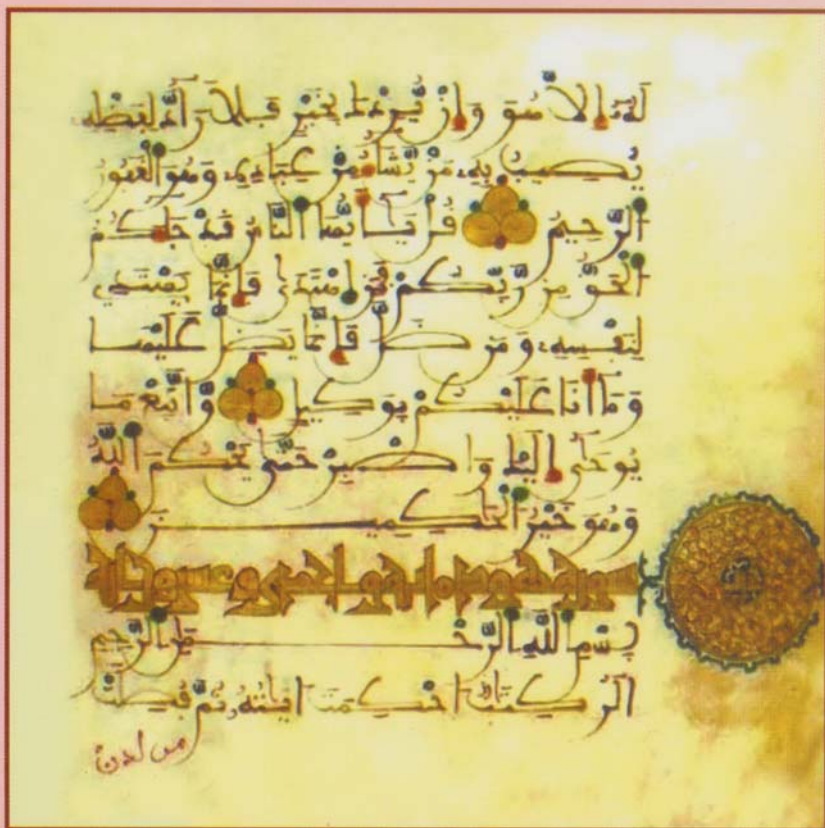 لَهُ إِلَّا هُوَ وَإِنْ يُّرِدْكَ بِخَيْرٍ فَلَا رَآدَّ لِفَضْلِهِ
يُصِيبُ بِهِ مَنْ يَّشَاءُ مِنْ عِبَادِهِ وَهُوَ الْغَفُورُ
الرَّحِيمُ قُلْ يَأَيُّهَا النَّاسُ قَدْ جَاءَكُمُ
الْحَقُّ مِن رَّبِّكُمْ فَمَنِ اهْتَدَى فَإِنَّمَا يَهْتَدِي
لِنَفْسِهِ وَمَن ضَلَّ فَإِنَّمَا يَضِلُّ عَلَيْهَا
وَمَا أَنَا عَلَيْكُمْ بِوَكِيلٍ وَّاتَّبِعْ مَا
يُوحَى إِلَيْكَ وَاصْبِرْ حَتَّى يَحْكُمَ اللَّهُ
وَهُوَ خَيْرُ الْحَكِمِينَ
سورة هود مايه واحدى وعشرون اية
بِسْمِ اللَّهِ الرَّحْمَنِ الرَّحِيمِ
الَر كِتَبٌ احْكِمَتَ ايَتُهُ ثُمَّ فُصِّلَتْ
من لدن